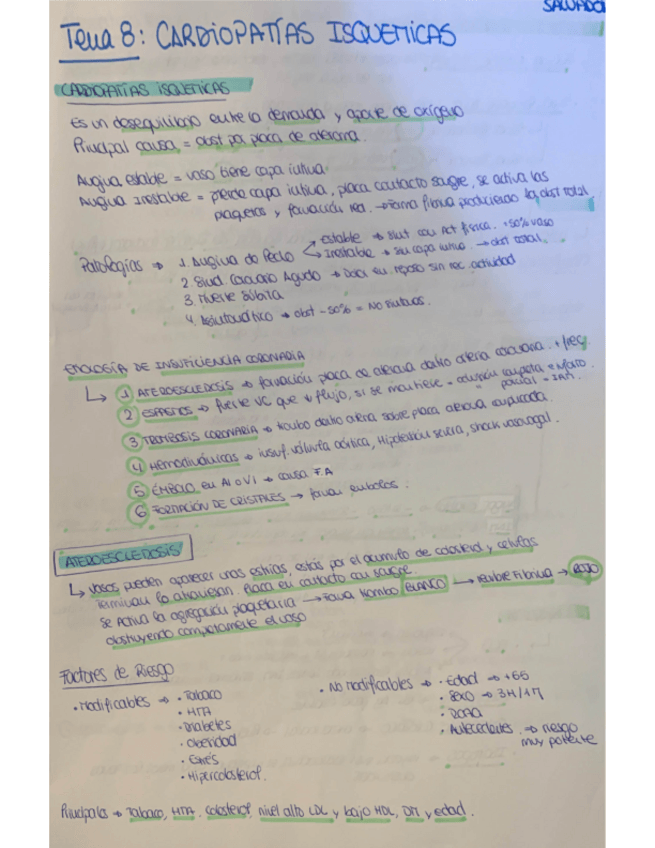 SALVADOR
Tema 8: CARDIOPATÍAS ISQUEMICAS
CARDIOPATÍAS ISQUEMICAS
Es un desequilibrio entre la demanda y aporte de oxígeno
Principal causa = obst por placa de ateroma.
Angina estable = vaso tiene capa intima
Angina Inestable = pierde capa intima, placa contacto sangre, se activa las
plaquetas y formación → forma fibrina produciendo la obst total
Patologías → 1. Angina de Pecho
Estable → sint con Act física. +50% vaso
Inestable → sin capa intima → obst total.
2. Sind. Coronario Agudo → Dolor en reposo sin rec. actividad
3. Muerte Súbita
4. Asintomático → obst -50% = No síntomas.
ETIOLOGÍA DE INSUFICIENCIA CORONARIA
1 ATEROESCLEROSIS → formación placa de ateroma dentro arteria coronaria. + frec.
2 ESPASMOS → fuerte VC que ↓ flujo, si se mantiene = oclusión completa = Muerte.
" parcial = IAM.
3 TROMBOSIS CORONARIA → trombo dentro arteria sobre placa ateroma complicada.
4 Hemodinámicas → insuf. válvula aórtica, Hipotensión severa, shock vasovagal.
5 ÉMBOLO en AI o VI → causa FA
6 FORMACIÓN DE CRISTALES → forman embolos.
ATEROESCLEROSIS
↳ Vasos pueden aparecer unas estrías, estas por el acumulo de colesterol y células
Terminan la atraviesan. Placa en contacto con sangre.
Se Activa la agregación plaquetaria → Forma trombo BLANCO → Fibrina → ROJO
obstruyendo completamente el vaso
Factores de Riesgo
· Modificables → · Tabaco
· HTA
· Diabetes
· Obesidad
· Estrés
· Hipercolesterol.
· No modificables → · Edad → +65
· Sexo → 3H/1M
· RAZA
· Antecedentes → riesgo
muy potente
Principales → Tabaco, HTA, Colesterol, nivel alto LDL y bajo HDL, DM y edad.